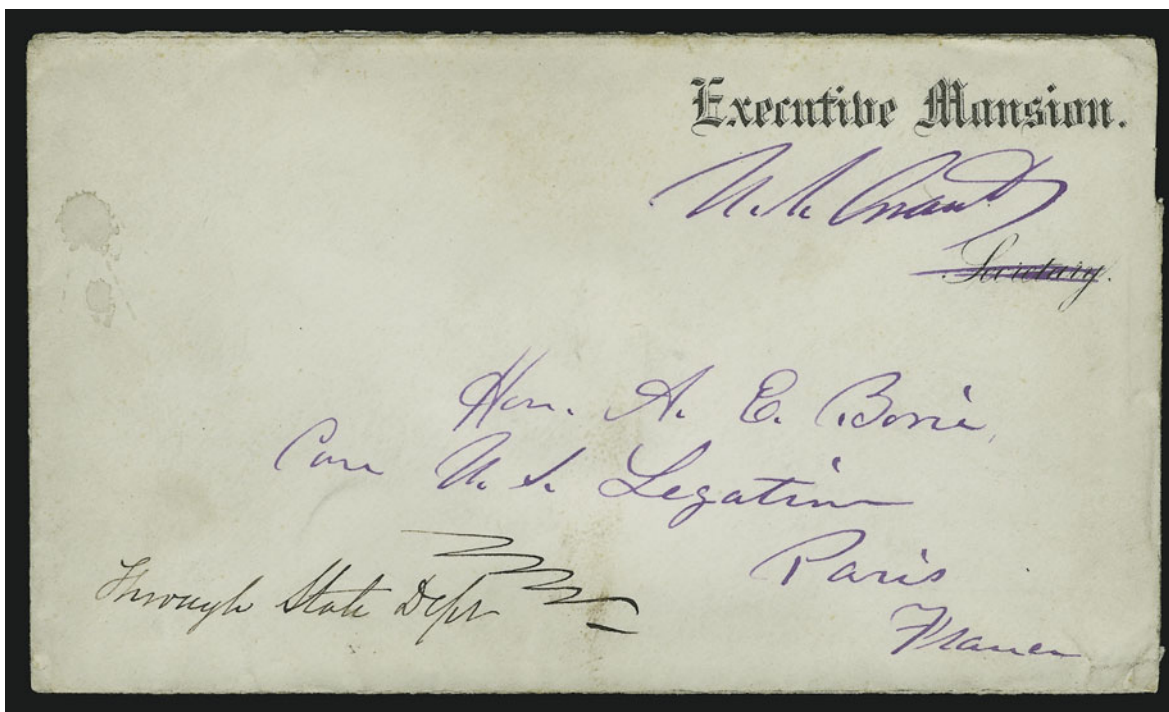 Executive Mansion.
U. S. Grant
Secretary.
Hon. A. E. Borie,
Care U. S. Legation
Paris
France
Through State Dept